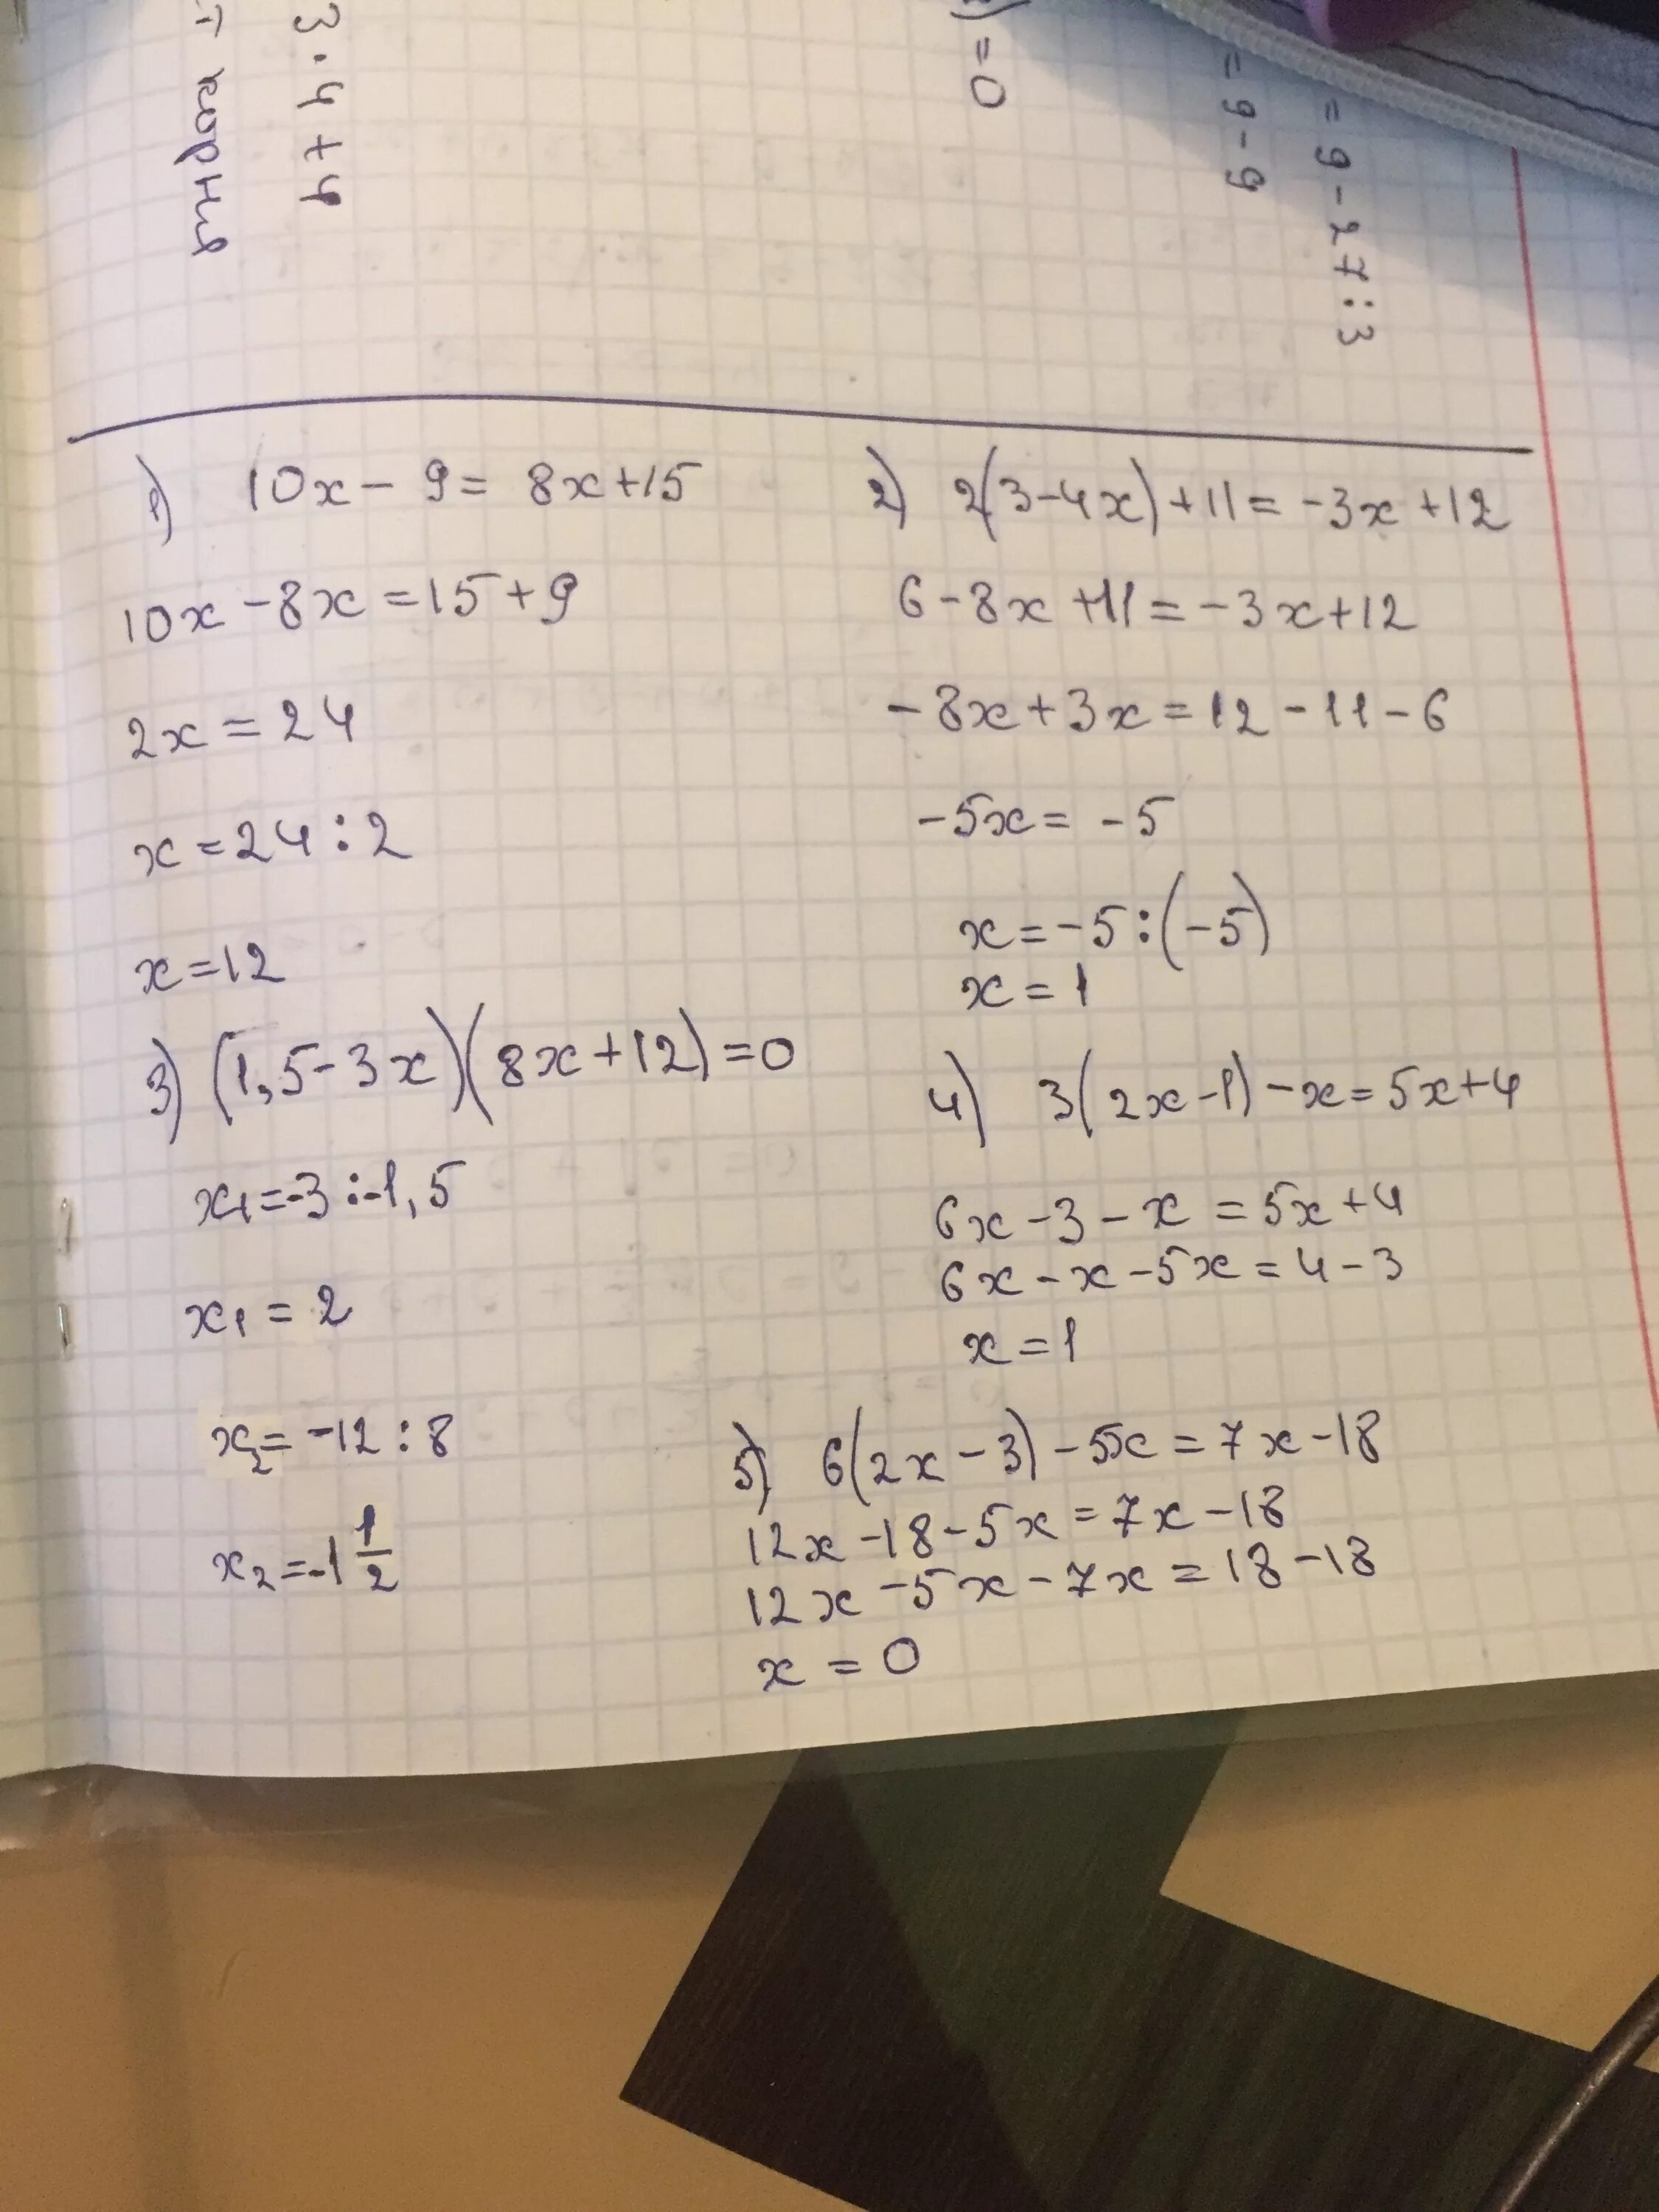 3·4+4
т корня
)=0
=9-9
=9-27:3
1) 10x-9=8x+15
10x-8x=15+9
2x=24
x=24:2
x=12
2) 2(3-4x)+11=-3x+12
6-8x+11=-3x+12
-8x+3x=12-11-6
-5x=-5
x=-5:(-5)
x=1
3) (1,5-3x)(8x+12)=0
x₁=-3:-1,5
x₁=2
x₂=-12:8
x₂=-1 1/2
4) 3(2x-1)-x=5x+4
6x-3-x=5x+4
6x-x-5x=4-3
x=1
5) 6(2x-3)-5x=7x-18
12x-18-5x=7x-18
12x-5x-7x=18-18
x=0